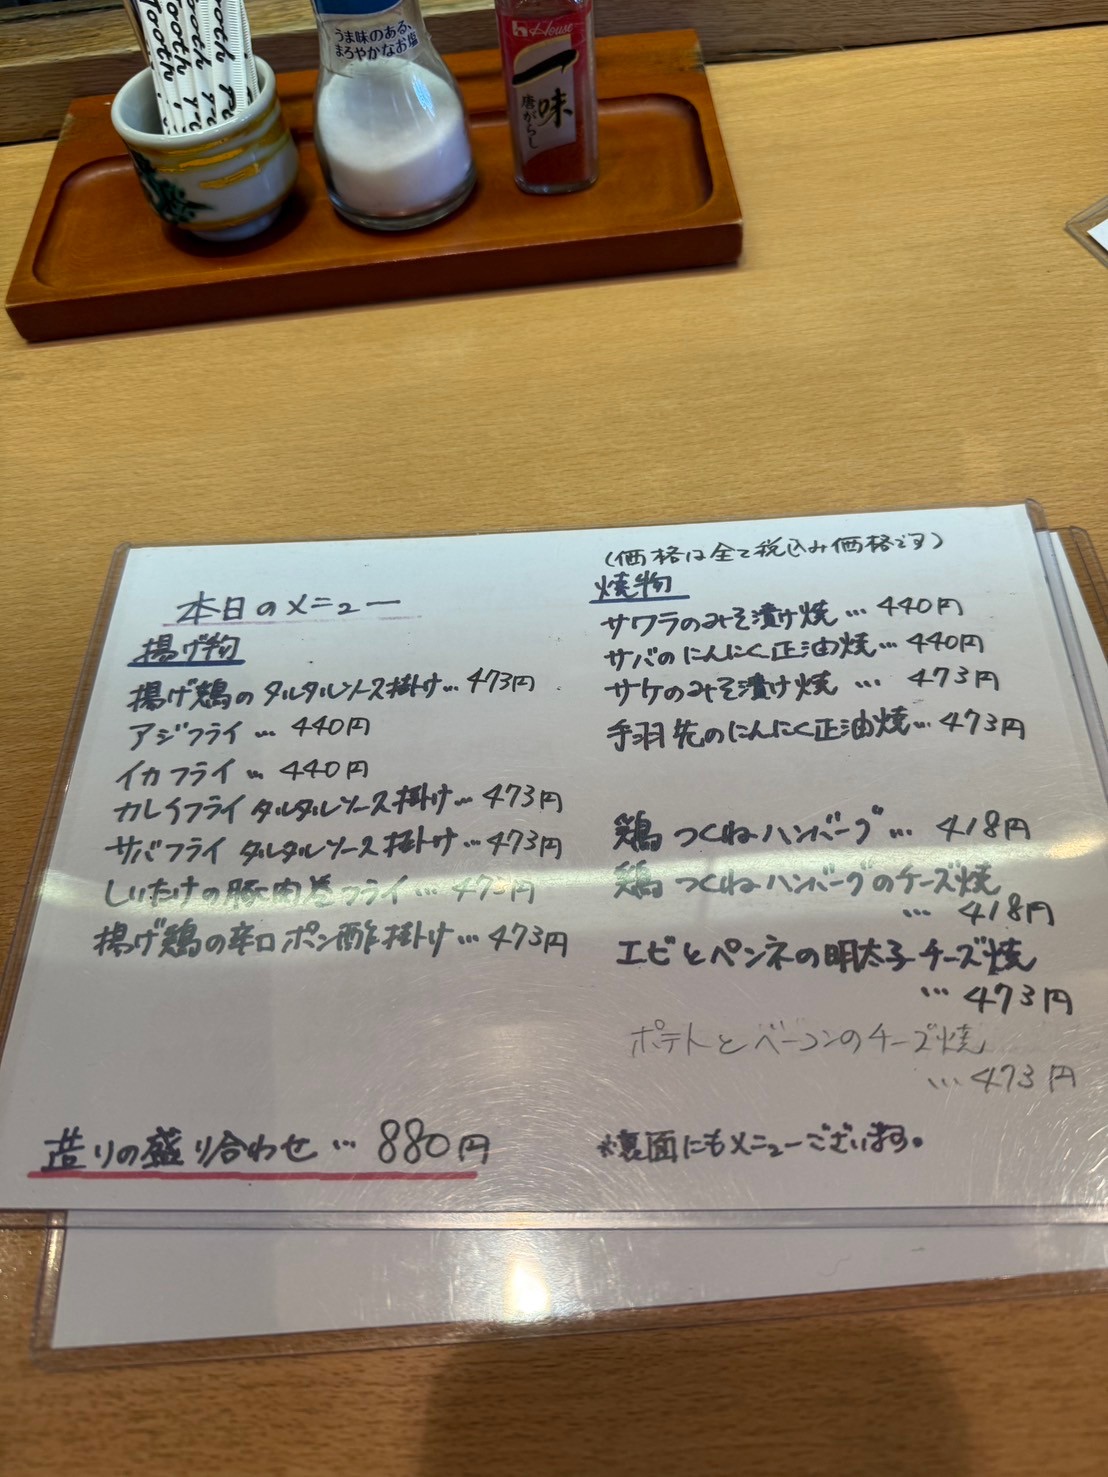 Tooth
Tooth
うま味のある、
まろやかなお塩
House
一味
唐がらし
(価格は全て税込み価格です)
本日のメニュー
揚げ物
揚げ鶏のタルタルソース掛け…473円
アジフライ…440円
イカフライ…440円
カレイフライタルタルソース掛け…473円
サバフライタルタルソース掛け…473円
しいたけの豚肉巻フライ…473円
揚げ鶏の辛口ポン酢掛け…473円
造りの盛り合わせ…880円
焼物
サワラのみそ漬け焼…440円
サバのにんにく正油焼…440円
サケのみそ漬け焼…473円
手羽先のにんにく正油焼…473円
鶏つくねハンバーグ…418円
鶏つくねハンバーグのチーズ焼
…418円
エビとペンネの明太子チーズ焼
…473円
ポテトとベーコンのチーズ焼
…473円
*裏面にもメニューございます。